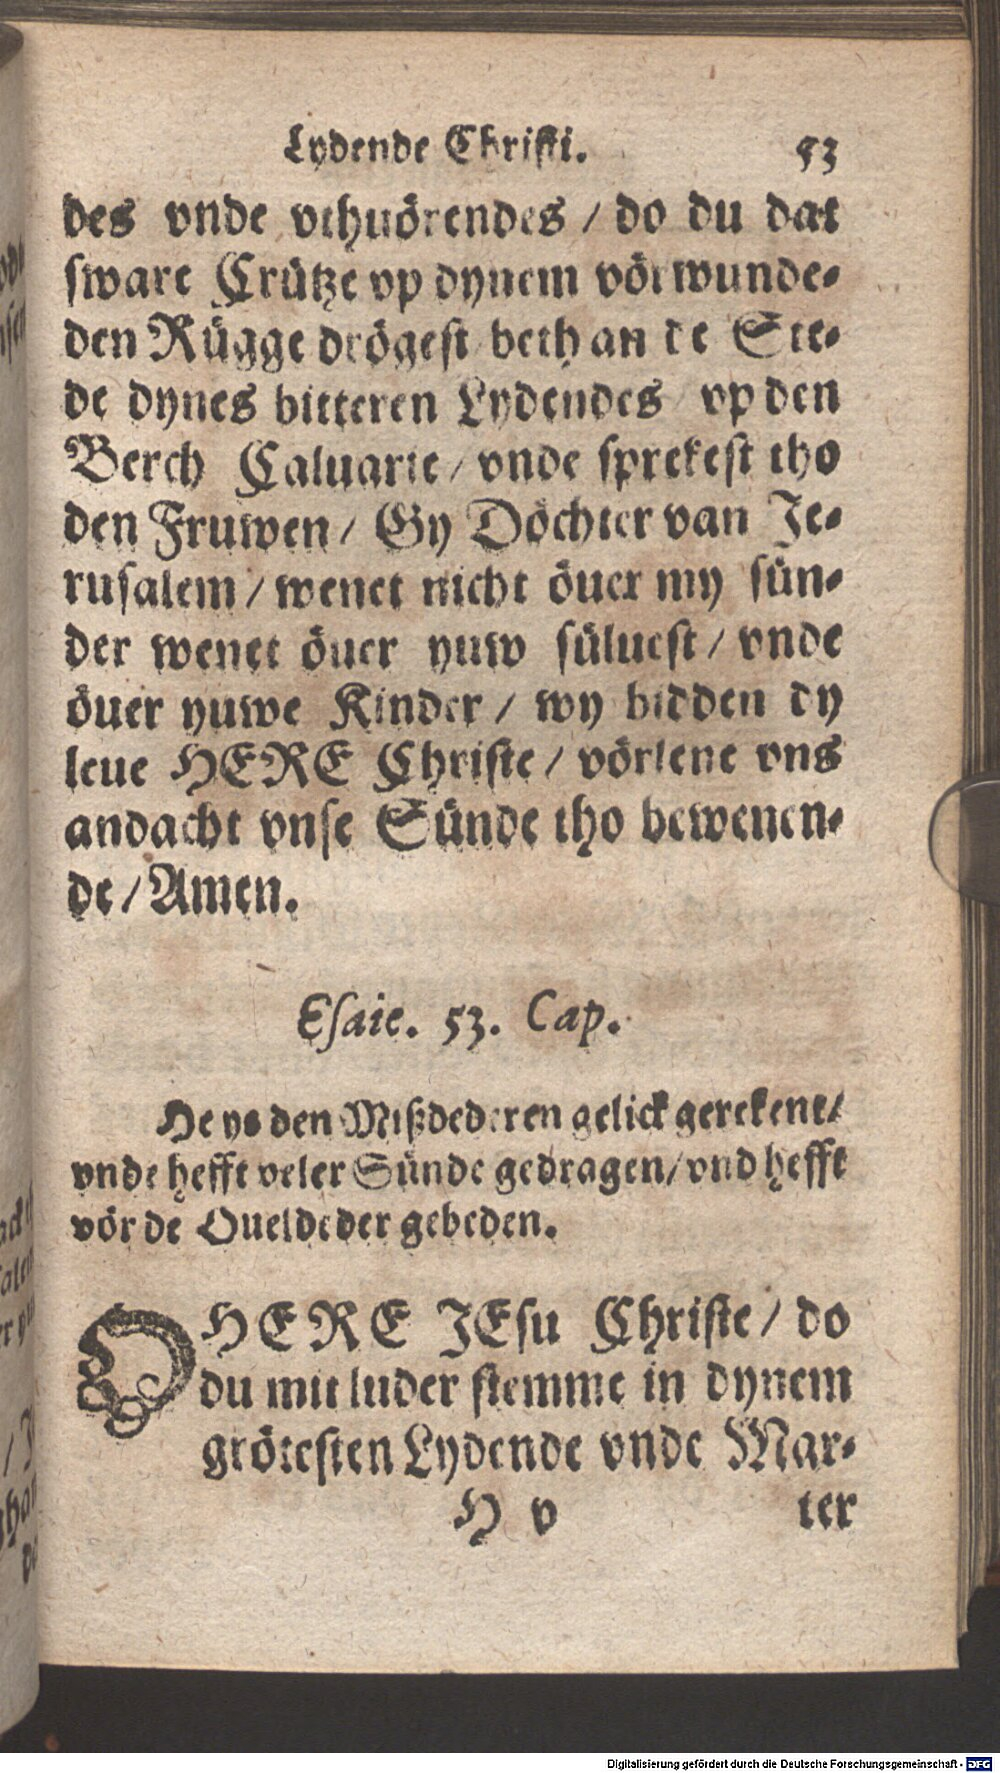 Lydende Christi. 53
des vnde vthuörendes / do du dat
sware Crütze vp dynem vörwunde-
den Rügge drögest beth an de Ste-
de dynes bitteren Lydendes / vp den
Berch Caluarie / vnde sprekest tho
den Fruwen / Gy Döchter van Je-
rusalem / wenet nicht öuer my sün-
der wenet öuer yuw süluest / vnde
öuer yuwe Kinder / wy bidden dy
leue HERE Christe / vörlene vns
andacht vnse Sünde tho bewenen-
de / Amen.
Esaie. 53. Cap.
He ys den Mißdederen gelick gerekent /
vnde hefft veler Sünde gedragen / vnd hefft
vör de Oueldeder gebeden.
O HERE JEsu Christe / do
du mit luder stemme in dynem
grötesten Lydende vnde Mar-
H v ter
Digitalisierung gefördert durch die Deutsche Forschungsgemeinschaft - DFG